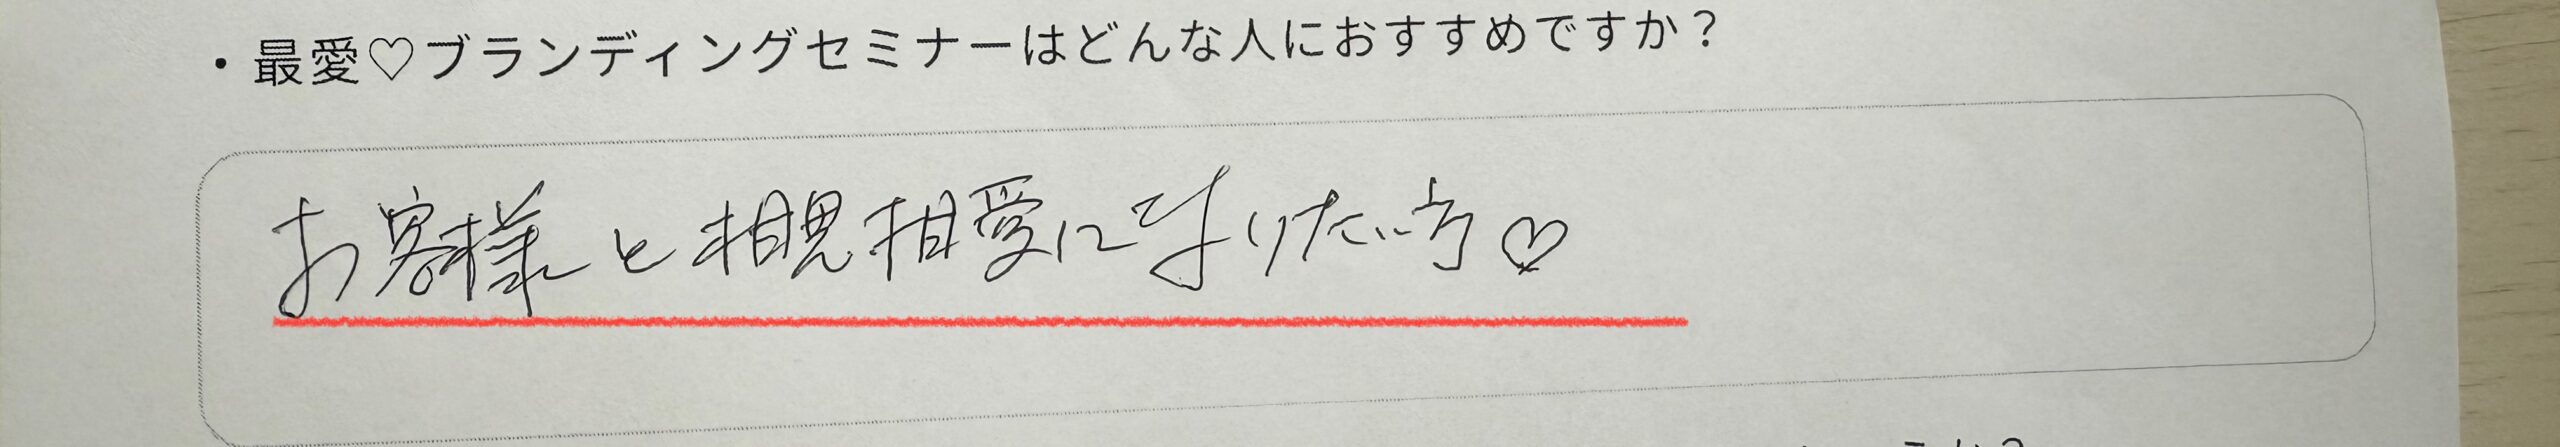 ・最愛♡ブランディングセミナーはどんな人におすすめですか？
お客様と相思相愛になりたい方♡